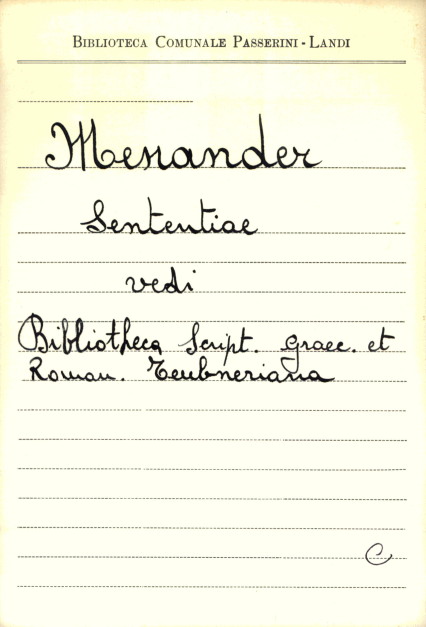 BIBLIOTECA COMUNALE PASSERINI - LANDI
Menander
Sententiae
vedi
Bibliotheca Script. Graec. et
Roman. Teubneriana
C